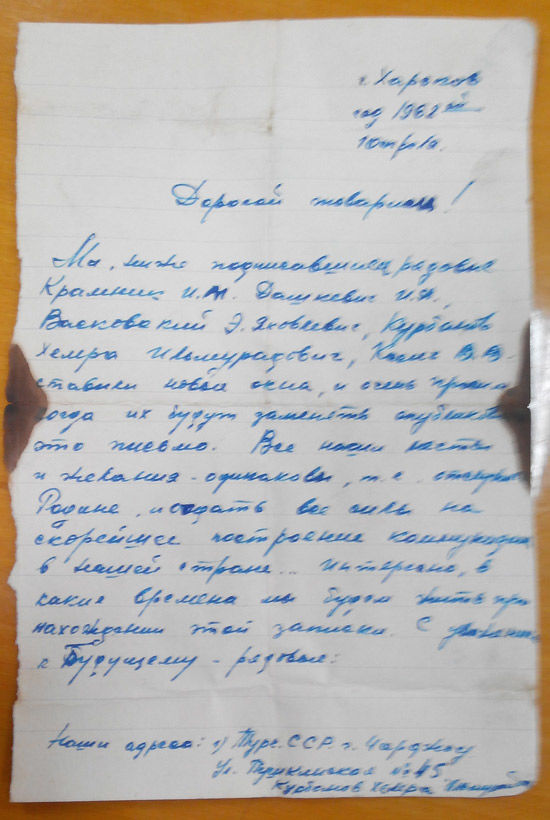 г. Харьков
год 1962 ой
Дорогой товарищ!
Мы, ниже подписавшиеся рядовые
Крамник И.М. Дашкевич И.Я.,
Васковский Э. Яковлевич, Курбанов
Хемра Ильмурадович, В.В.
ставили новые окна, и очень просим
когда их будут заменять опубликов
это письмо. Все наши мечты
и желания - одинаковы, т.е. отслужить
Родине, и отдать все силы на
скорейшее построение коммунизма
в нашей стране... Интересно, в
какие времена мы будем жить при
нахождении этой записки. С уважением
к Будущему - рядовые:
Наши адреса: 1) Турк. ССР. г. Чарджоу
ул. № 45
Курбанов Хемра